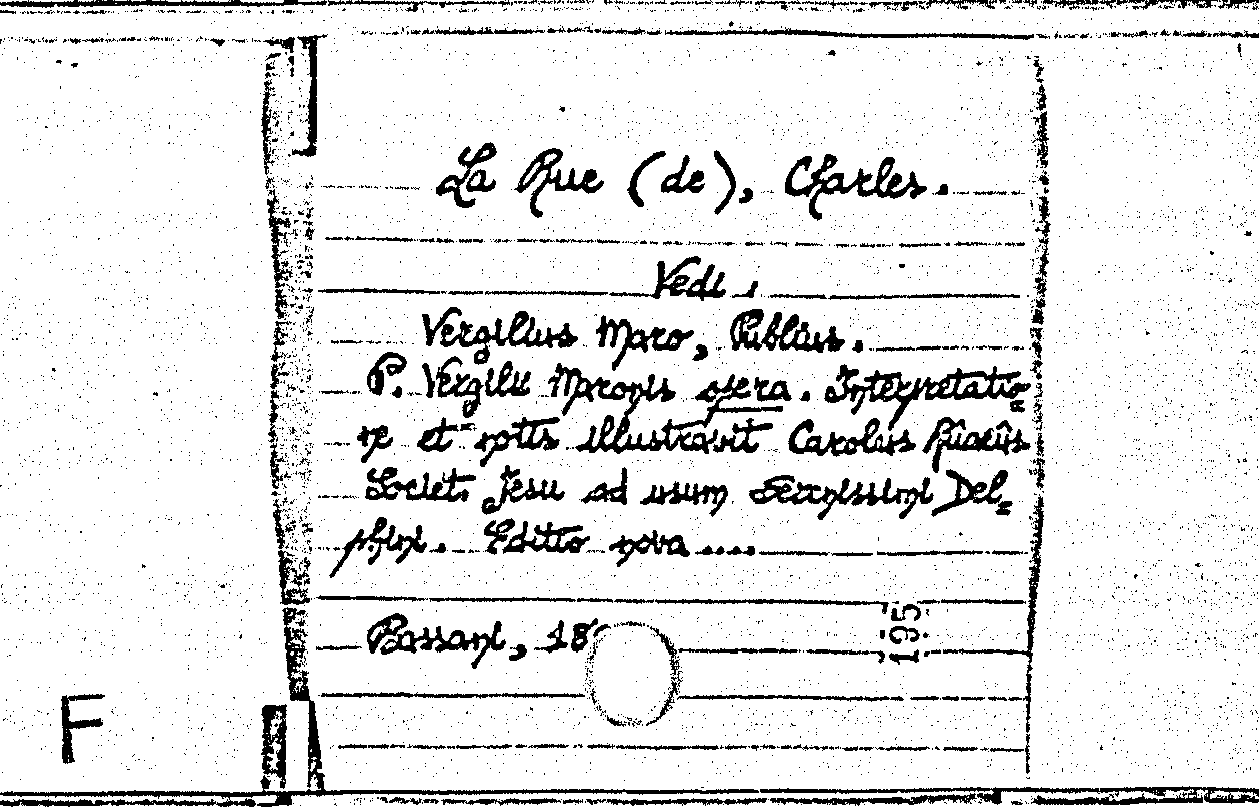 La Rue (de), Charles.
Vedi.
Vergilius Maro, Publius.
P. Vergilii Maronis opera. Interpretatio=
ne et notis illustravit Carolus Rûaeûs
Societ. Jesu ad usum Serenissimi Del=
phini. Editio nova ....
Bassani, 18
195
F